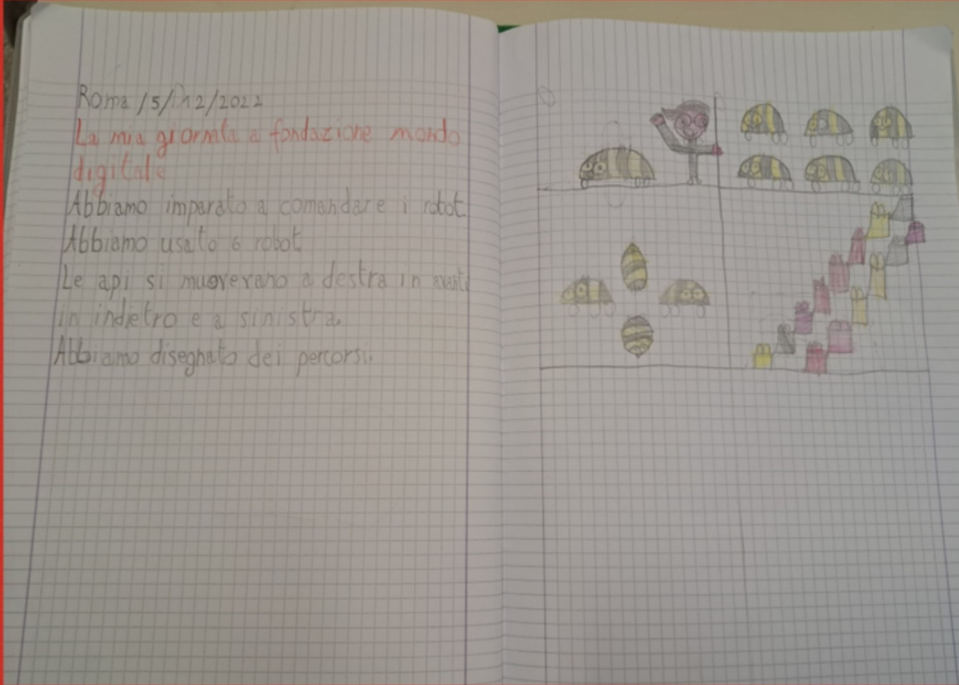 Roma 15/12/2022
La mia giornata a fondazione mondo
digitale
Abbiamo imparato a comandare i robot
Abbiamo usato 6 robot
Le api si muoverano a destra in avanti
in indietro e a sinistra.
Abbiamo disegnato dei percorsi.